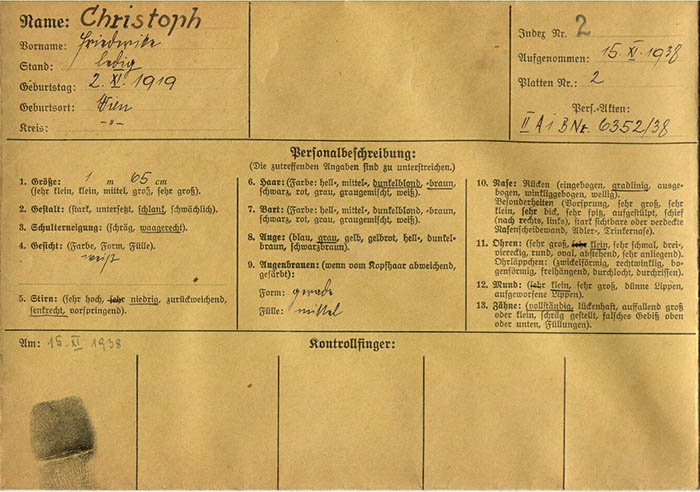 Name: Christoph
Vorname: Friederike
Stand: ledig
Geburtstag: 2. XI. 1919
Geburtsort: Wien
Kreis: -"-
Index Nr. 2
Aufgenommen: 15. XI. 1938
Platten Nr.: 2
Pers.-Akten:
II A i B Nr. 6352/38
Personalbeschreibung:
(Die zutreffenden Angaben sind zu unterstreichen.)
1. Größe: 1 m 65 cm
(sehr klein, klein, mittel, groß, sehr groß).
2. Gestalt: (stark, untersetzt, schlank, schwächlich).
3. Schulterneigung: (schräg, waagerecht).
4. Gesicht: (Farbe, Form, Fülle).
5. Stirn: (sehr hoch, sehr niedrig, zurückweichend,
senkrecht, vorspringend).
6. Haar: (Farbe: hell-, mittel-, dunkelblond, -braun,
schwarz, rot, grau, graugemischt, weiß).
7. Bart: (Farbe: hell-, mittel-, dunkelblond, -braun,
schwarz, rot, grau, graugemischt, weiß).
8. Auge: (blau, grau, gelb, gelbrot, hell-, dunkel-
braun, schwarzbraun).
9. Augenbrauen: (wenn vom Kopfhaar abweichend,
gefärbt):
Form: gerade
Fülle: mittel
10. Nase: Rücken (eingebogen, gradlinig, ausge-
bogen, winkliggebogen, wellig).
Besonderheiten (Vorsprung, sehr groß, sehr
klein, sehr dick, sehr spitz, aufgestülpt, schief
(nach rechts, links), stark sichtbare oder verdeckte
Nasenscheidewand, Adler-, Trinkernase).
11. Ohren: (sehr groß, sehr klein, sehr schmal, drei-,
viereckig, rund, oval, abstehend, sehr anliegend).
Ohrläppchen: (zwickelförmig, rechtwinklig, bo-
genförmig, freihängend, durchlocht, durchrissen).
12. Mund: (sehr klein, sehr groß, dünne Lippen,
aufgeworfene Lippen).
13. Zähne: (vollständig, lückenhaft, auffallend groß
oder klein, schräg gestellt, falsches Gebiß oben
oder unten, Füllungen).
Am: 15. XI 1938
Kontrollfinger: